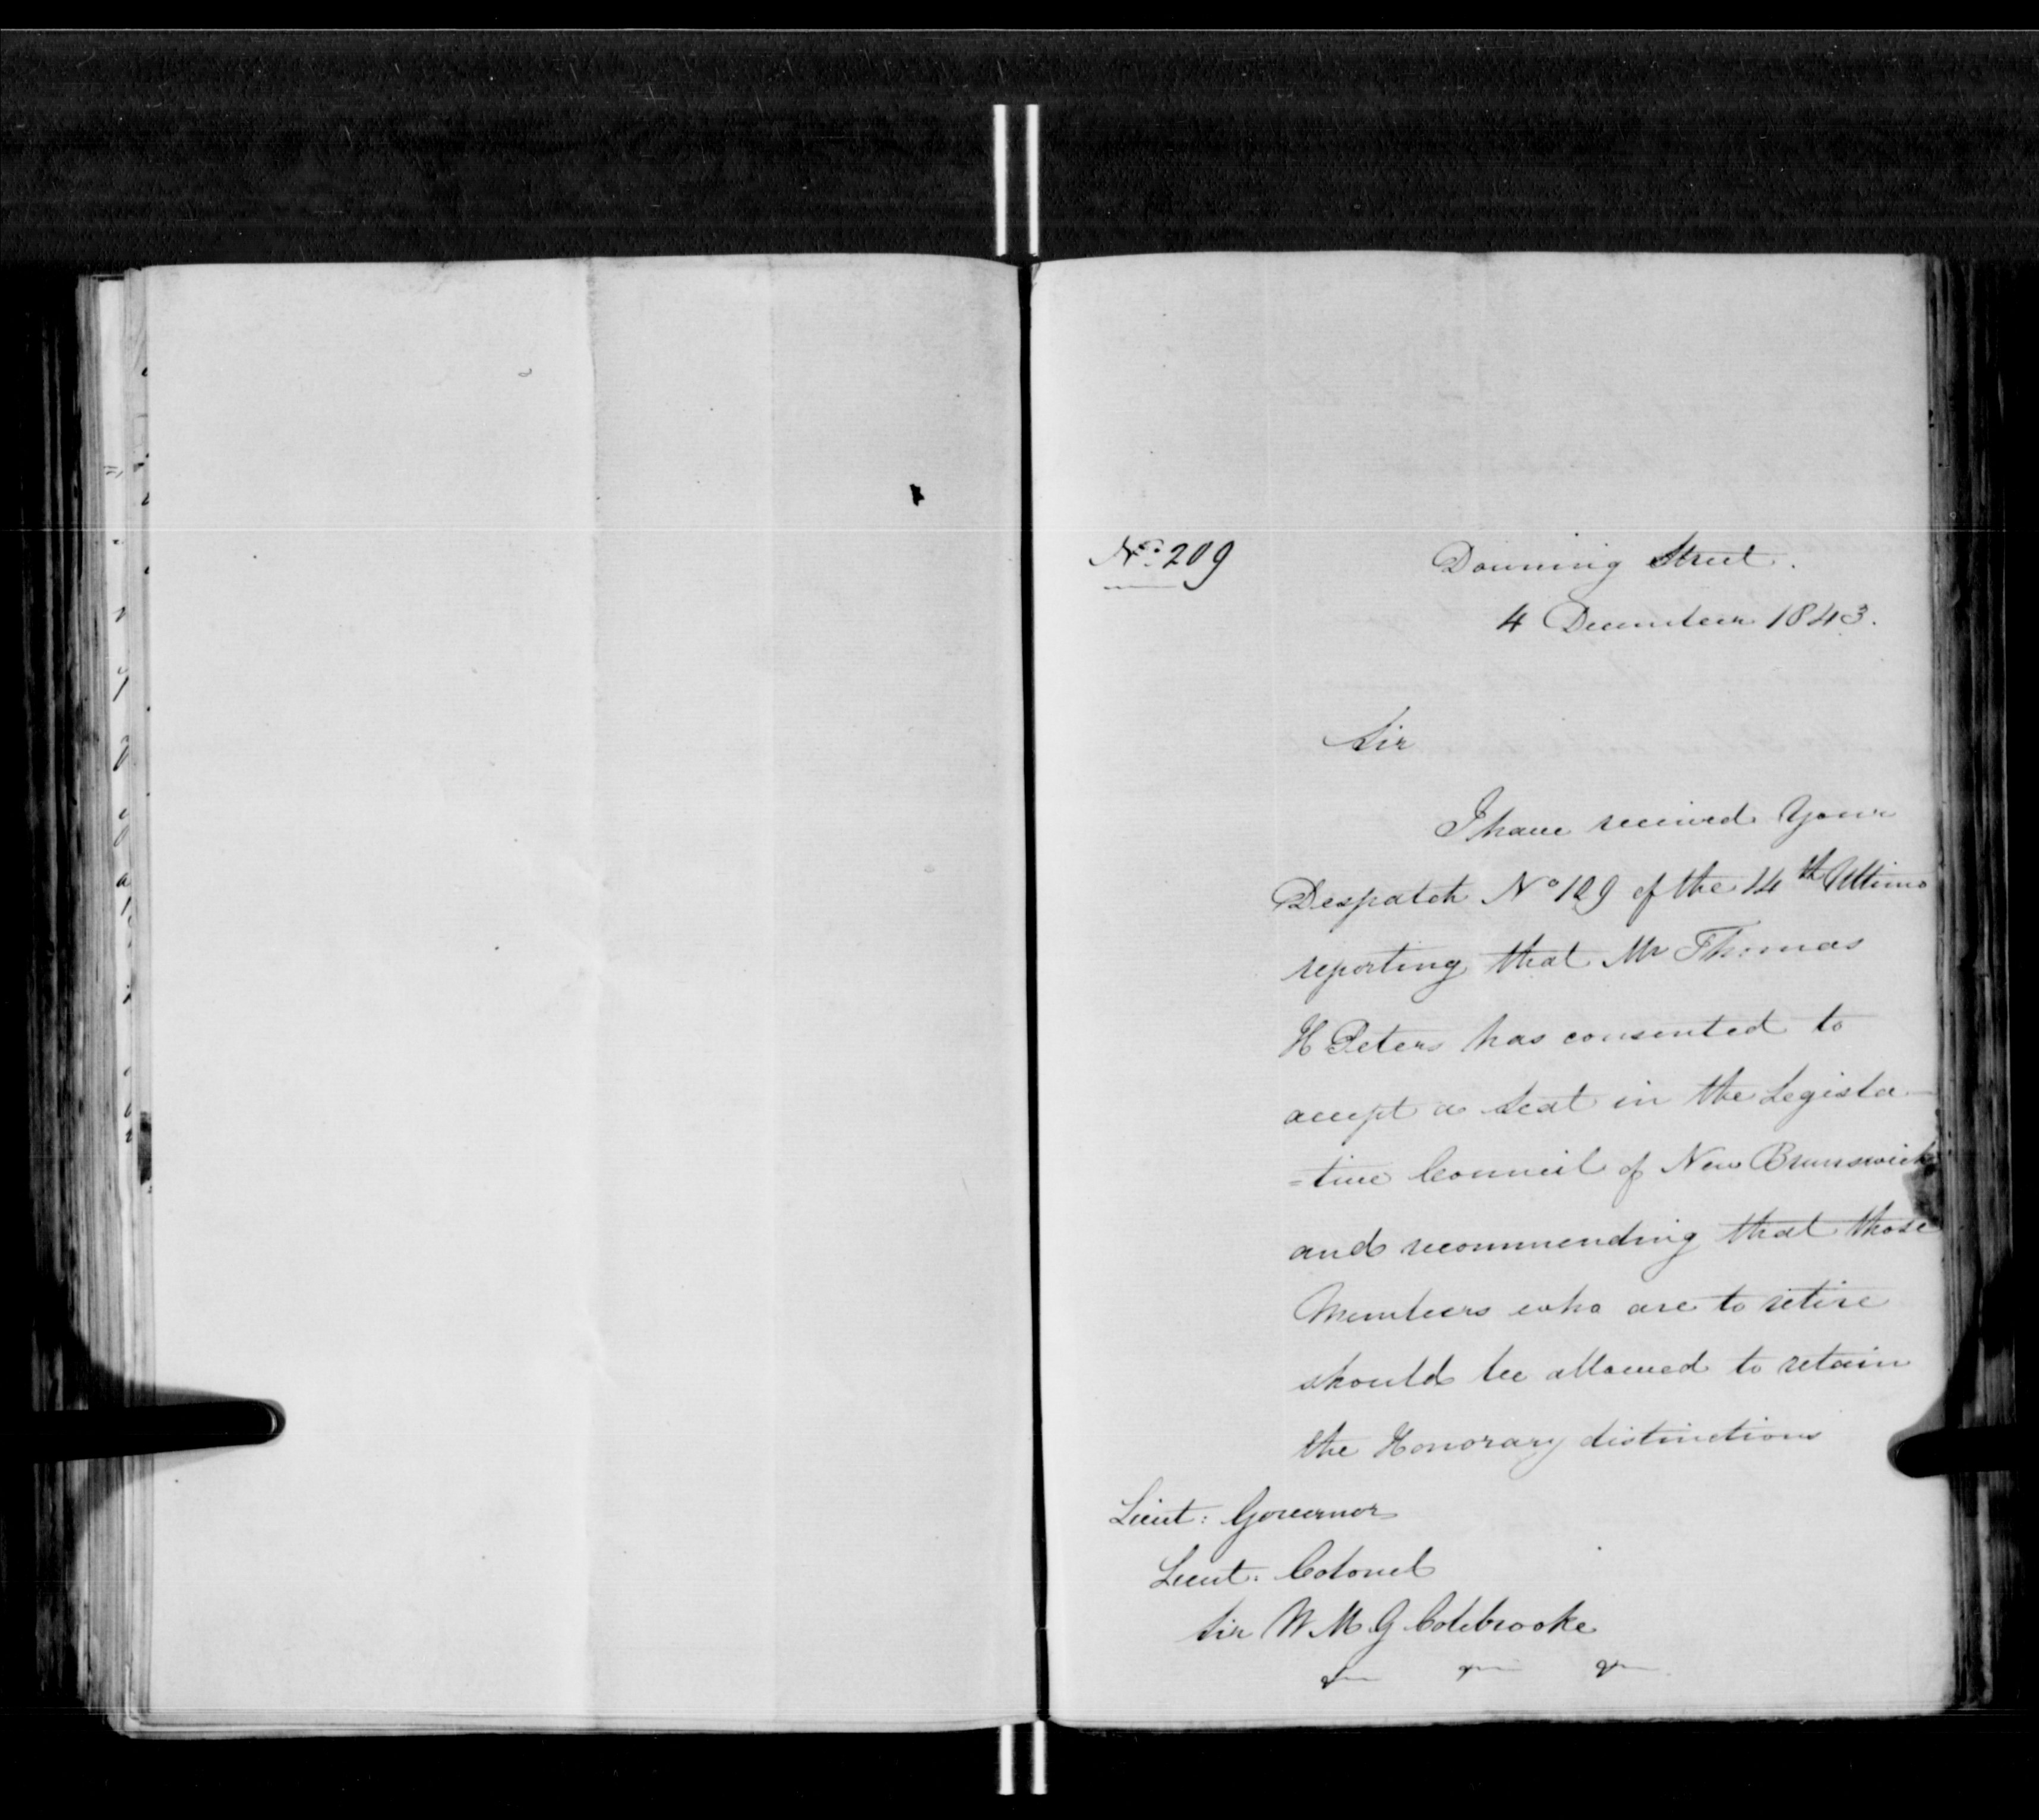 No. 209
Downing Street.
4 December 1843.
Sir
I have received Your
Despatch No 109 of the 14th Ultimo
reporting that Mr Thomas
H Peters has consented to
accept a Seat in the Legisla-
=tive Council of New Brunswick
and recommending that those
Members who are to retire
should be allowed to retain
the Honorary distinctions
Lieut: Governor
Lieut. Colonel
Sir W M G Colebrooke